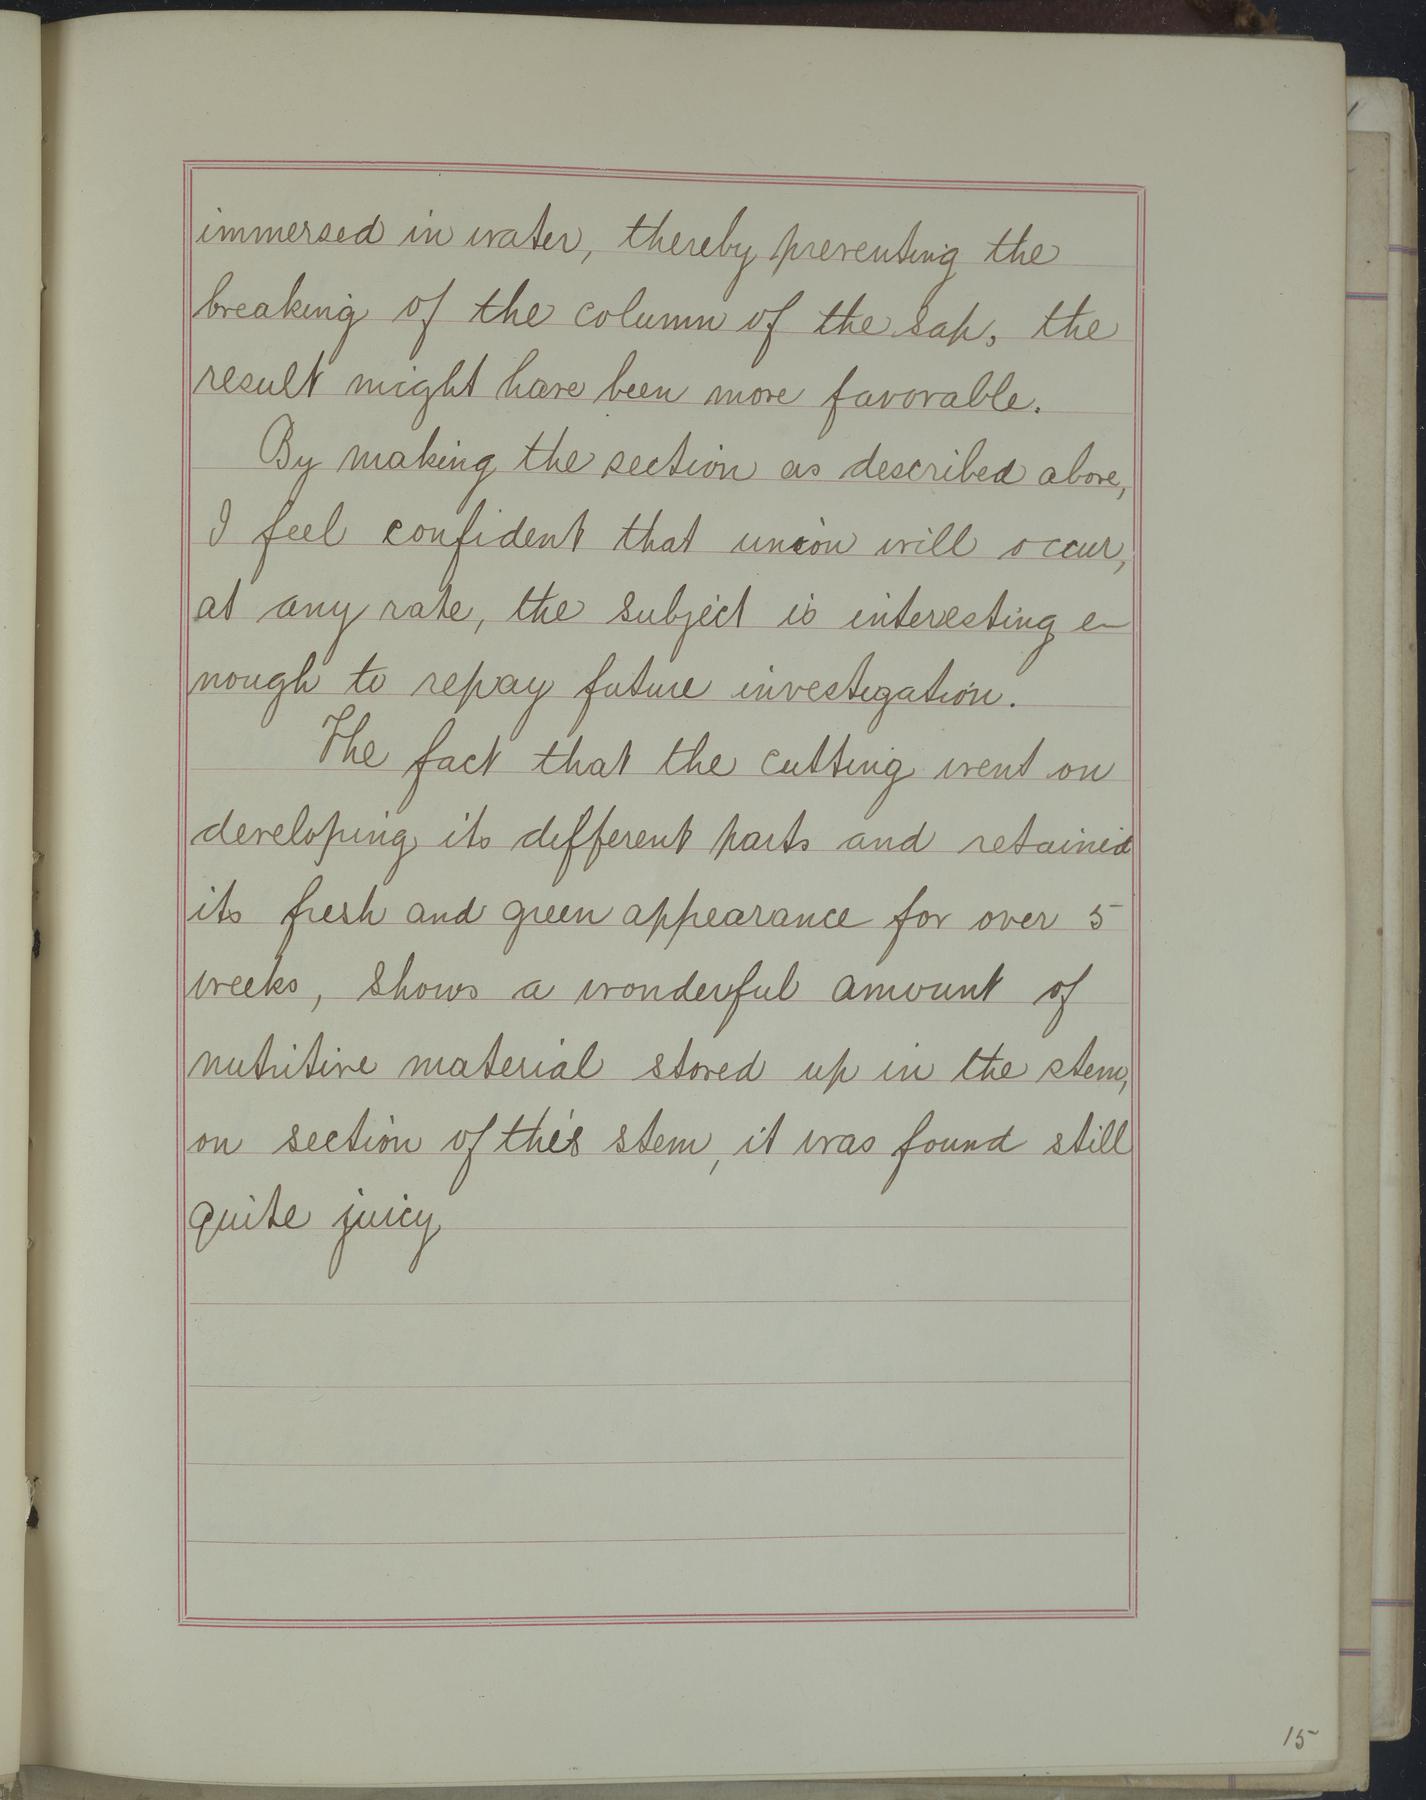 immersed in water, thereby preventing the
breaking of the column of the sap, the
result might have been more favorable.
By making the section as described above,
I feel confident that union will occur,
at any rate, the subject is interesting e-
nough to repay future investigation.
The fact that the cutting went on
developing its different parts and retained
its fresh and green appearance for over 5
weeks, shows a wonderful amount of
nutritive material stored up in the stem,
on section of this stem, it was found still
quite juicy
15